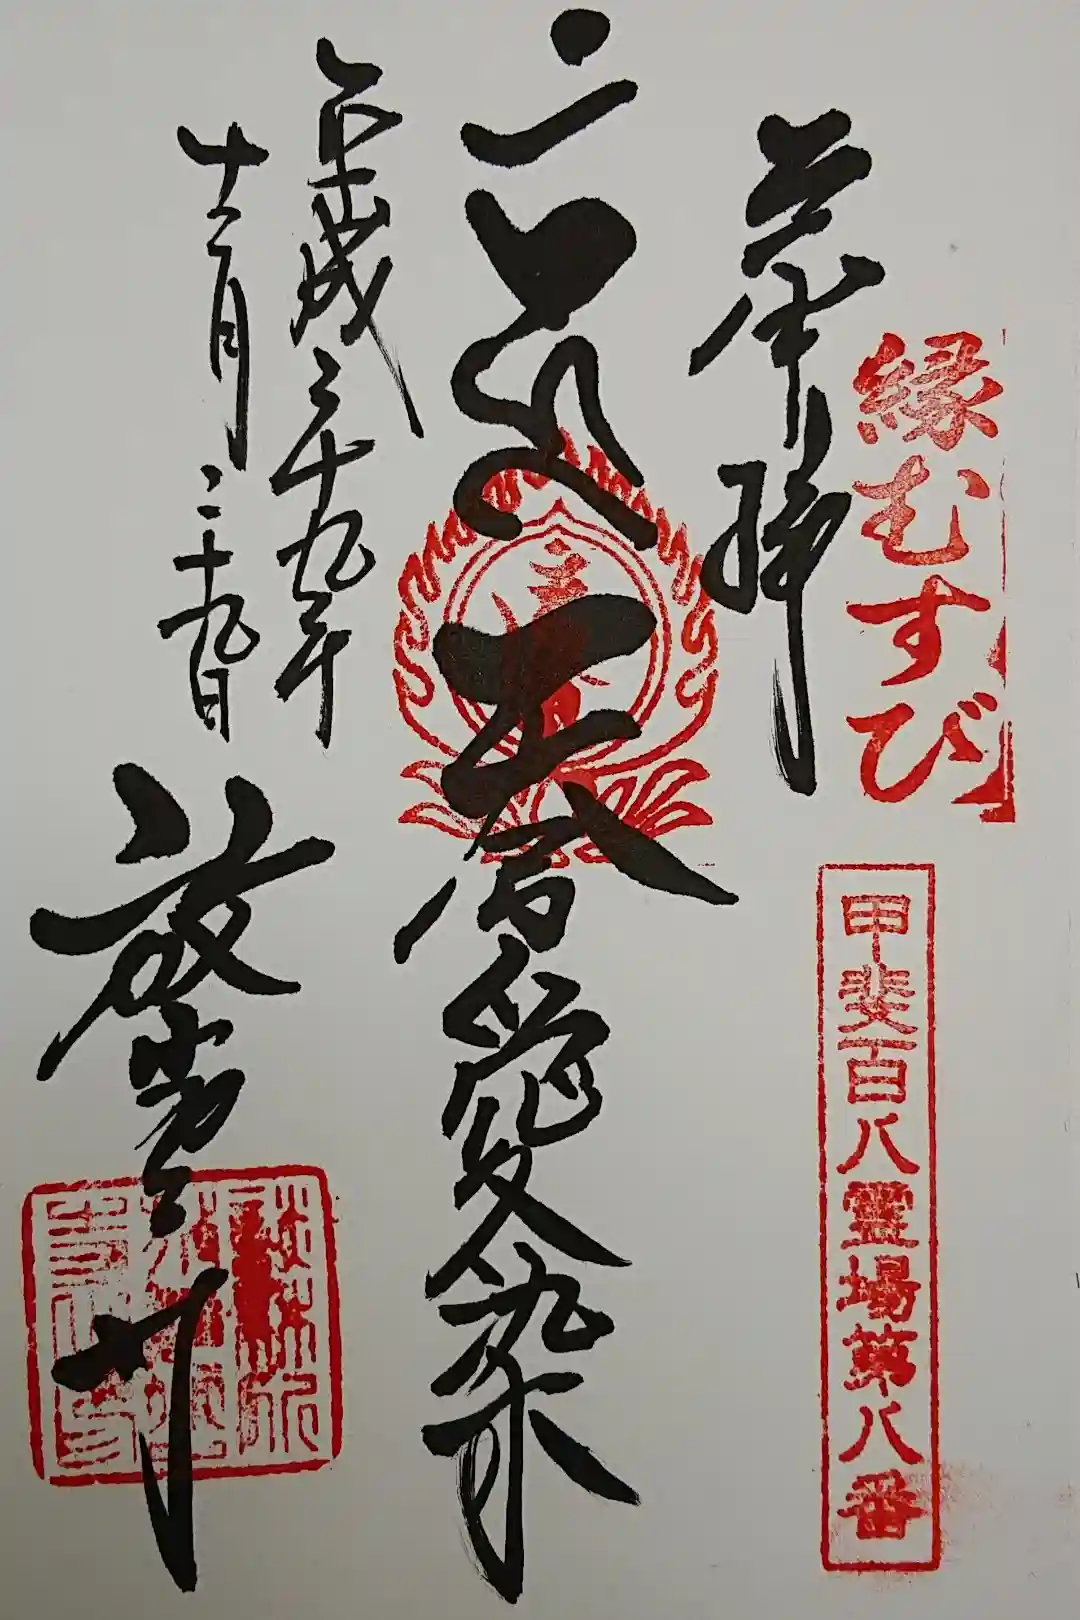 縁むすび
甲斐百八霊場第八番
奉拝
天弓愛染
平成二十九年
十二月二十九日
放光寺